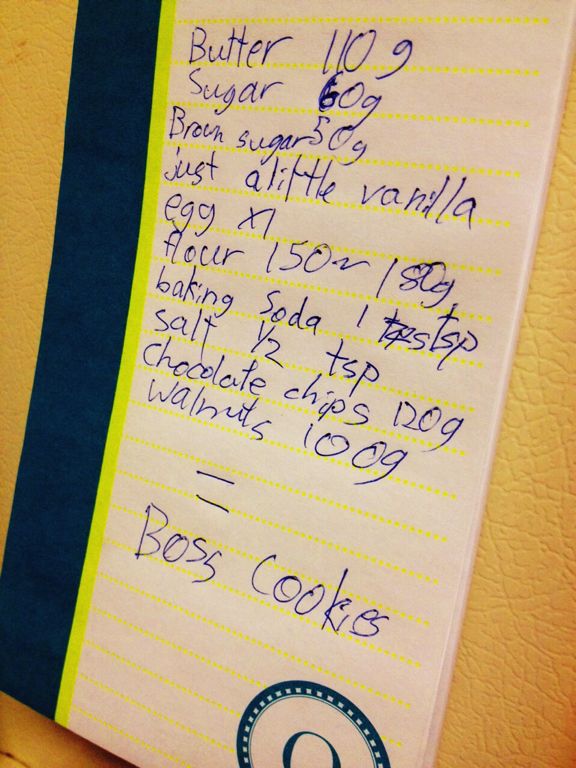 Butter 110g
Sugar 60g
Brown sugar 50g
just a little vanilla
egg x1
flour 150~180g
baking soda 1 tsp
salt 1/2 tsp
chocolate chips 120g
walnuts 100g
=
Boss Cookies